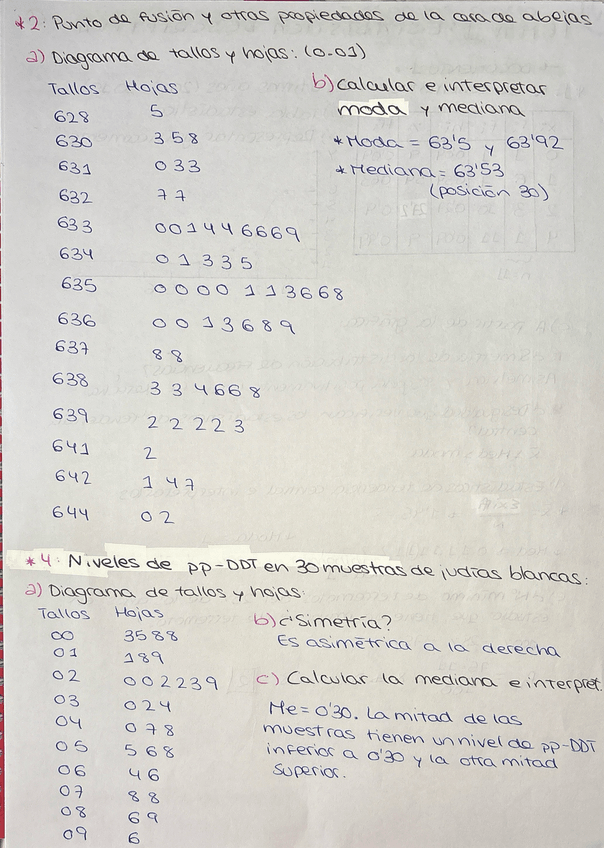 *2: Punto de fusión y otras propiedades de la cera de abejas
a) Diagrama de tallos y hojas: (0.01)
Tallos Hojas
628 5
630 3 5 8
631 0 3 3
632 7 7
633 0 0 1 4 4 6 6 6 9
634 0 1 3 3 5
635 0 0 0 0 1 1 3 6 6 8
636 0 0 1 3 6 8 9
637 8 8
638 3 3 4 6 6 8
639 2 2 2 2 3
641 2
642 1 4 7
644 0 2
b) Calcular e interpretar
moda y mediana
*Moda = 63'5 y 63'92
*Mediana = 63'53
(posición 30)
*4: Niveles de pp-DDT en 30 muestras de judías blancas:
a) Diagrama de tallos y hojas:
Tallos Hojas
00 3 5 8 8
01 1 8 9
02 0 0 2 2 3 9
03 0 2 4
04 0 7 8
05 5 6 8
06 4 6
07 8 8
08 6 9
09 6
b) ¿Simetría?
Es asimétrica a la derecha
c) Calcular la mediana e interpret.
Me = 0'30. La mitad de las
muestras tienen un nivel de pp-DDT
inferior a 0'30 y la otra mitad
superior.